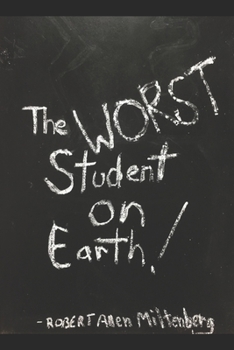 The WORST
Student
on
Earth!
- ROBERT Allen Miltenberg